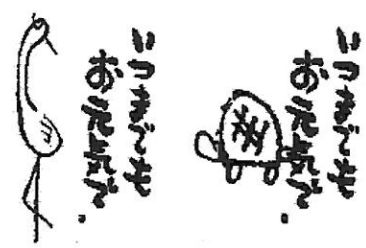 いつまでも
お元気で。
いつまでも
お元気で。